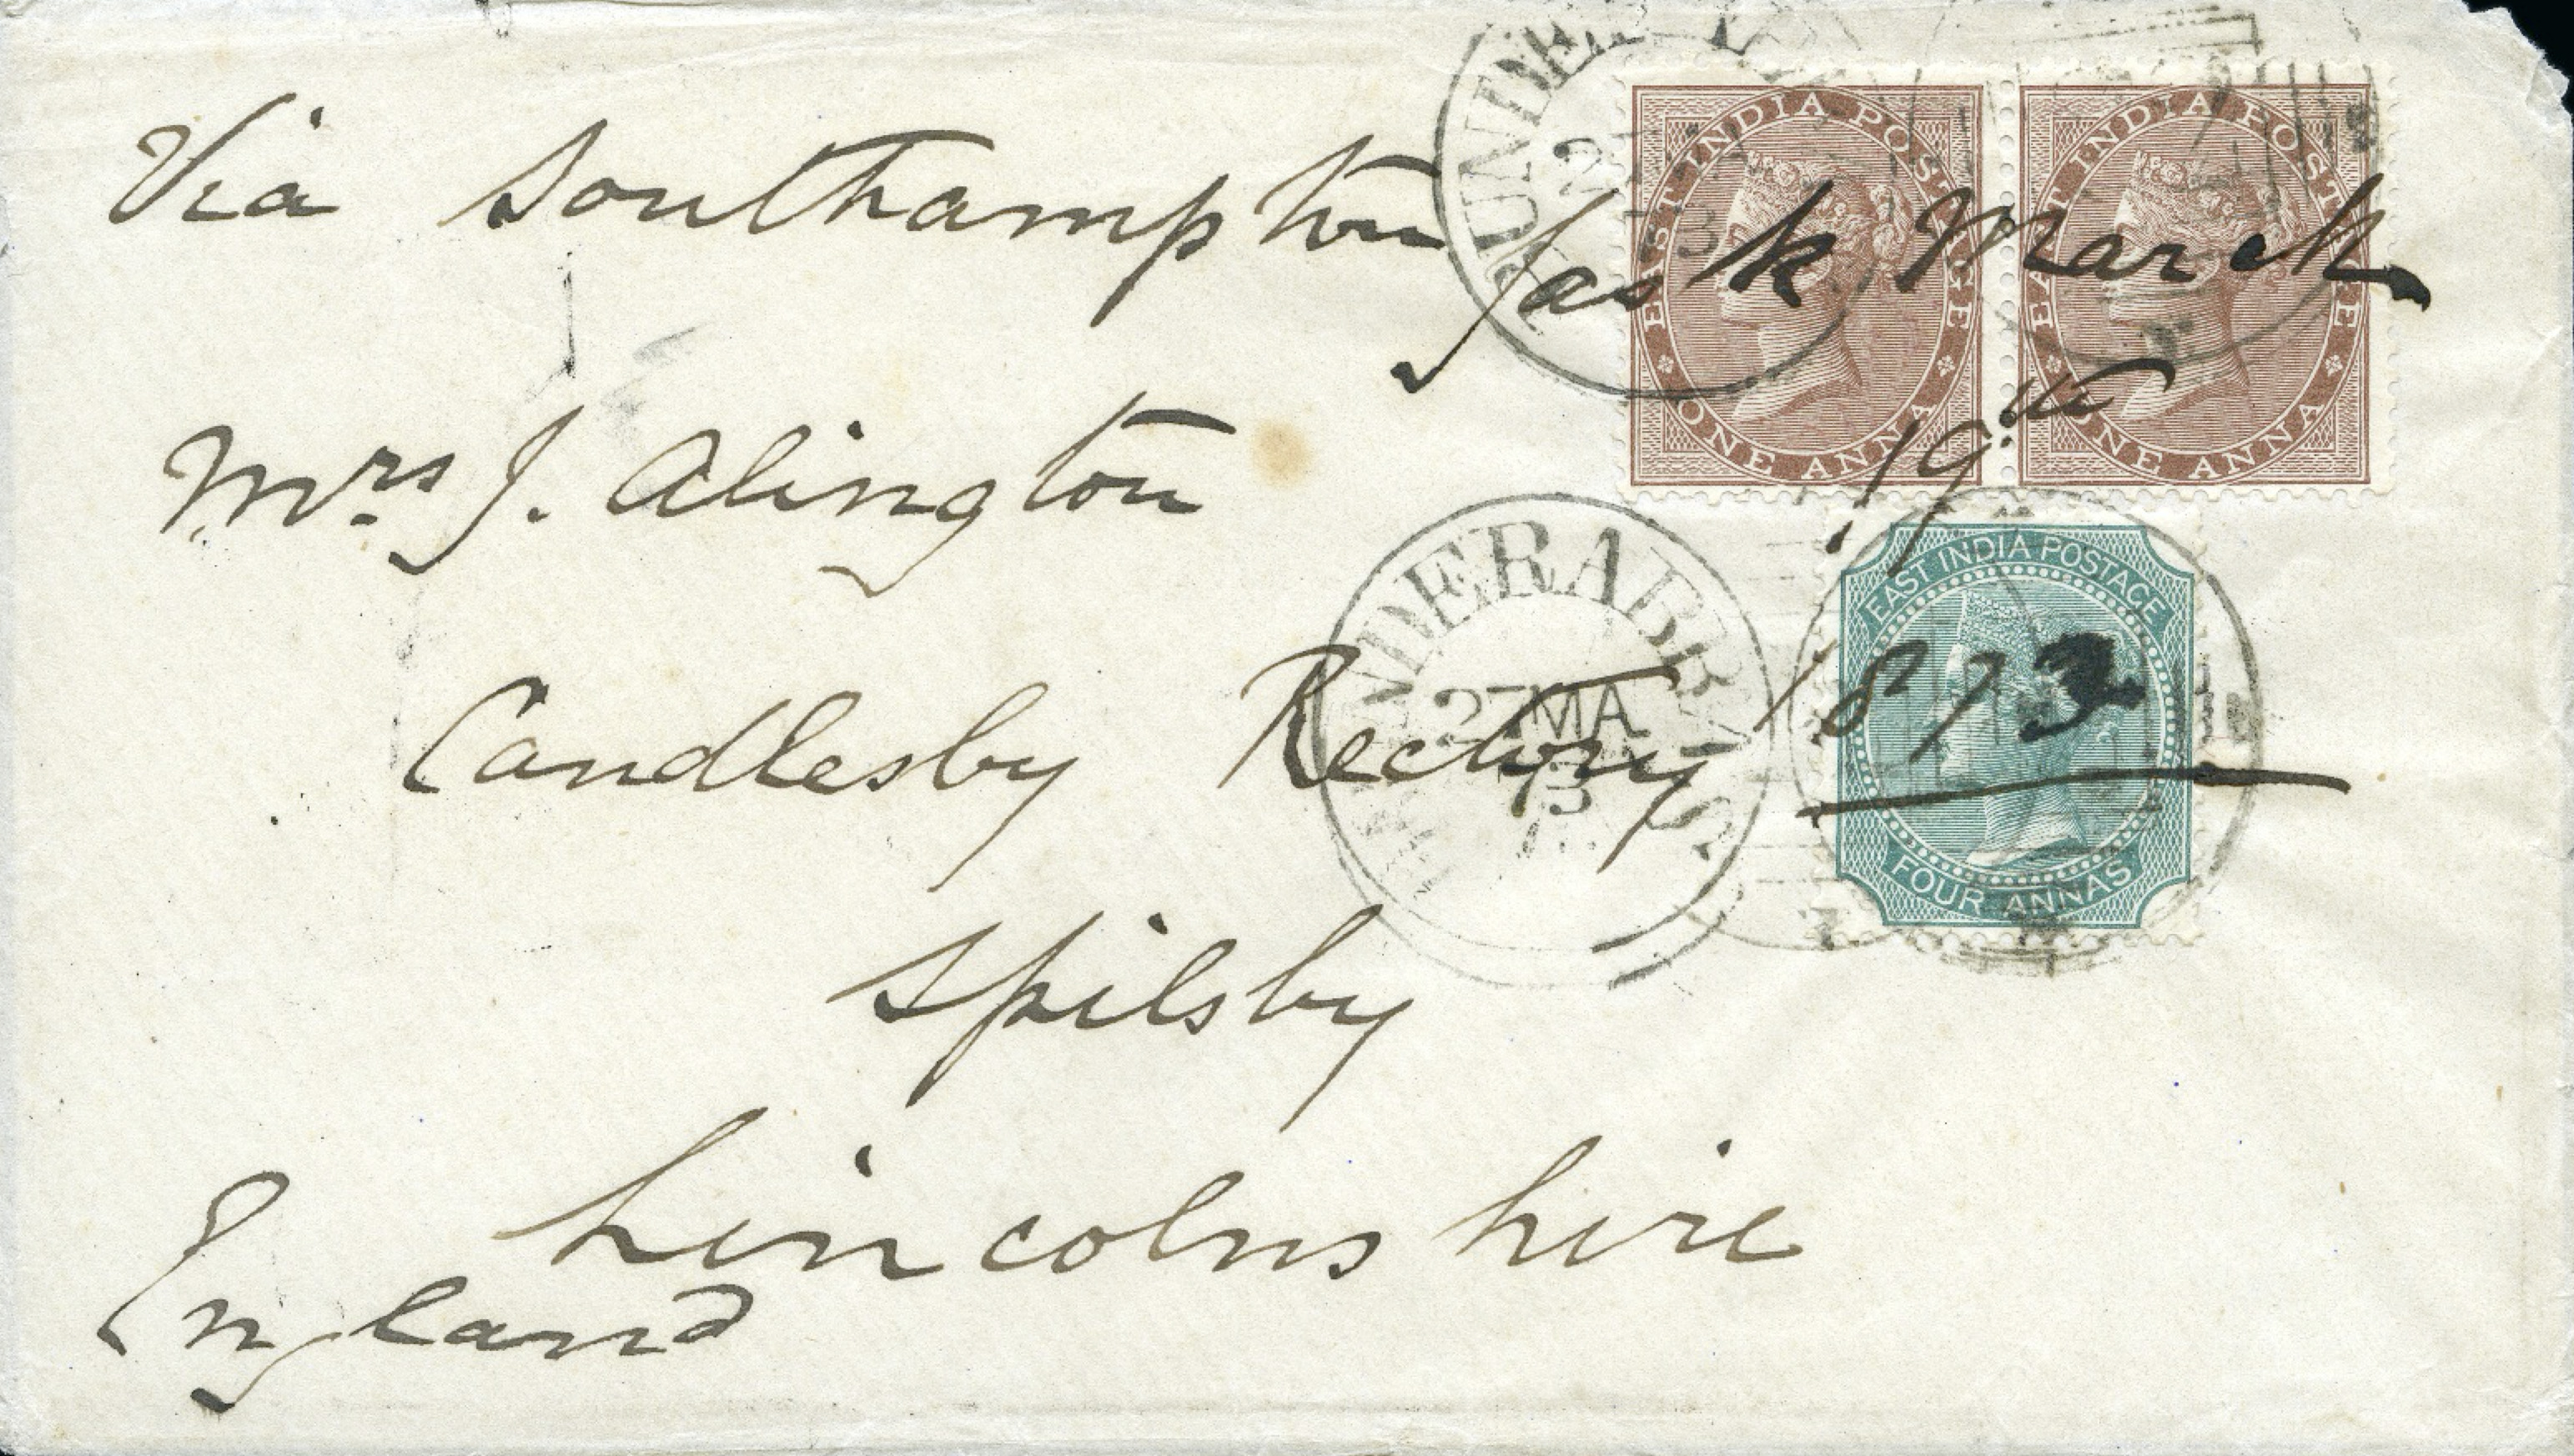 Via Southampton
Jask March
19th
1873
Mrs J. Alington
Candlesby Rectory
Spilsby
Lincolnshire
England
EAST INDIA POSTAGE
ONE ANNA
EAST INDIA POSTAGE
ONE ANNA
EAST INDIA POSTAGE
FOUR ANNAS
27 MA
73